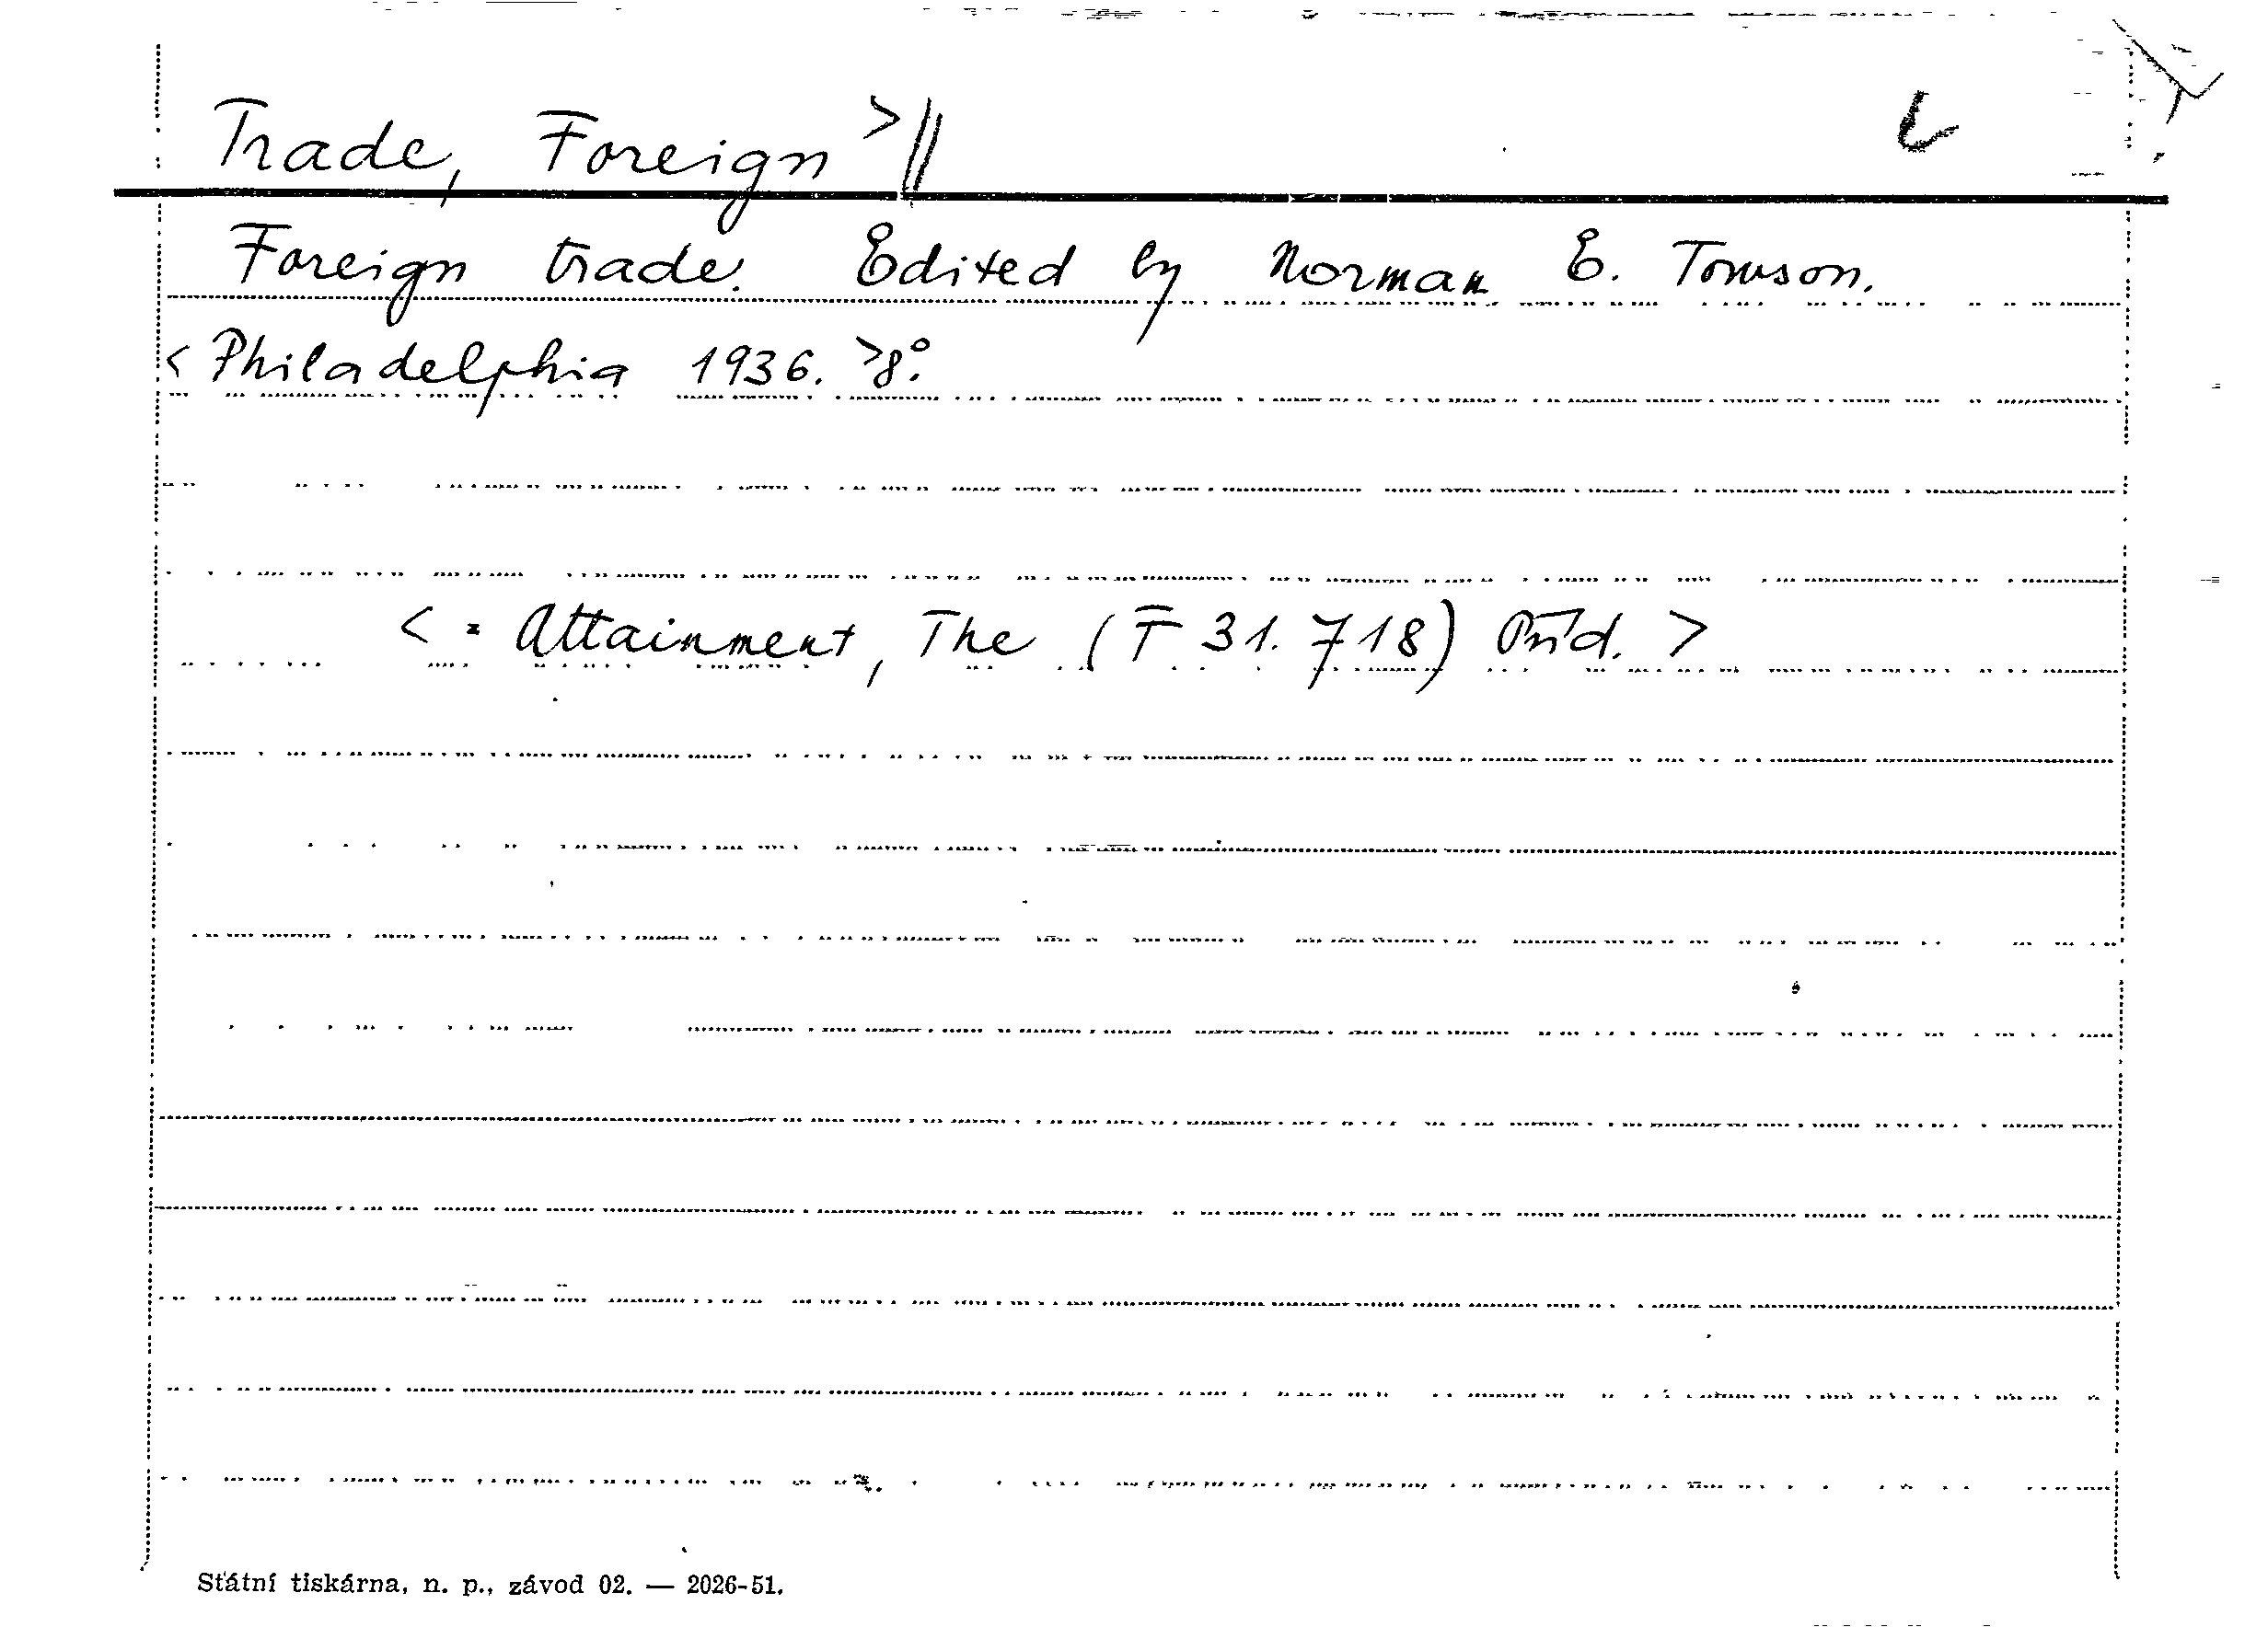 Trade, Foreign >||
Foreign trade. Edited by Norman E. Towson.
< Philadelphia 1936. >8°.
< = Attainment, The (T 31.718) Příd. >
Státní tiskárna, n. p., závod 02. — 2026-51.